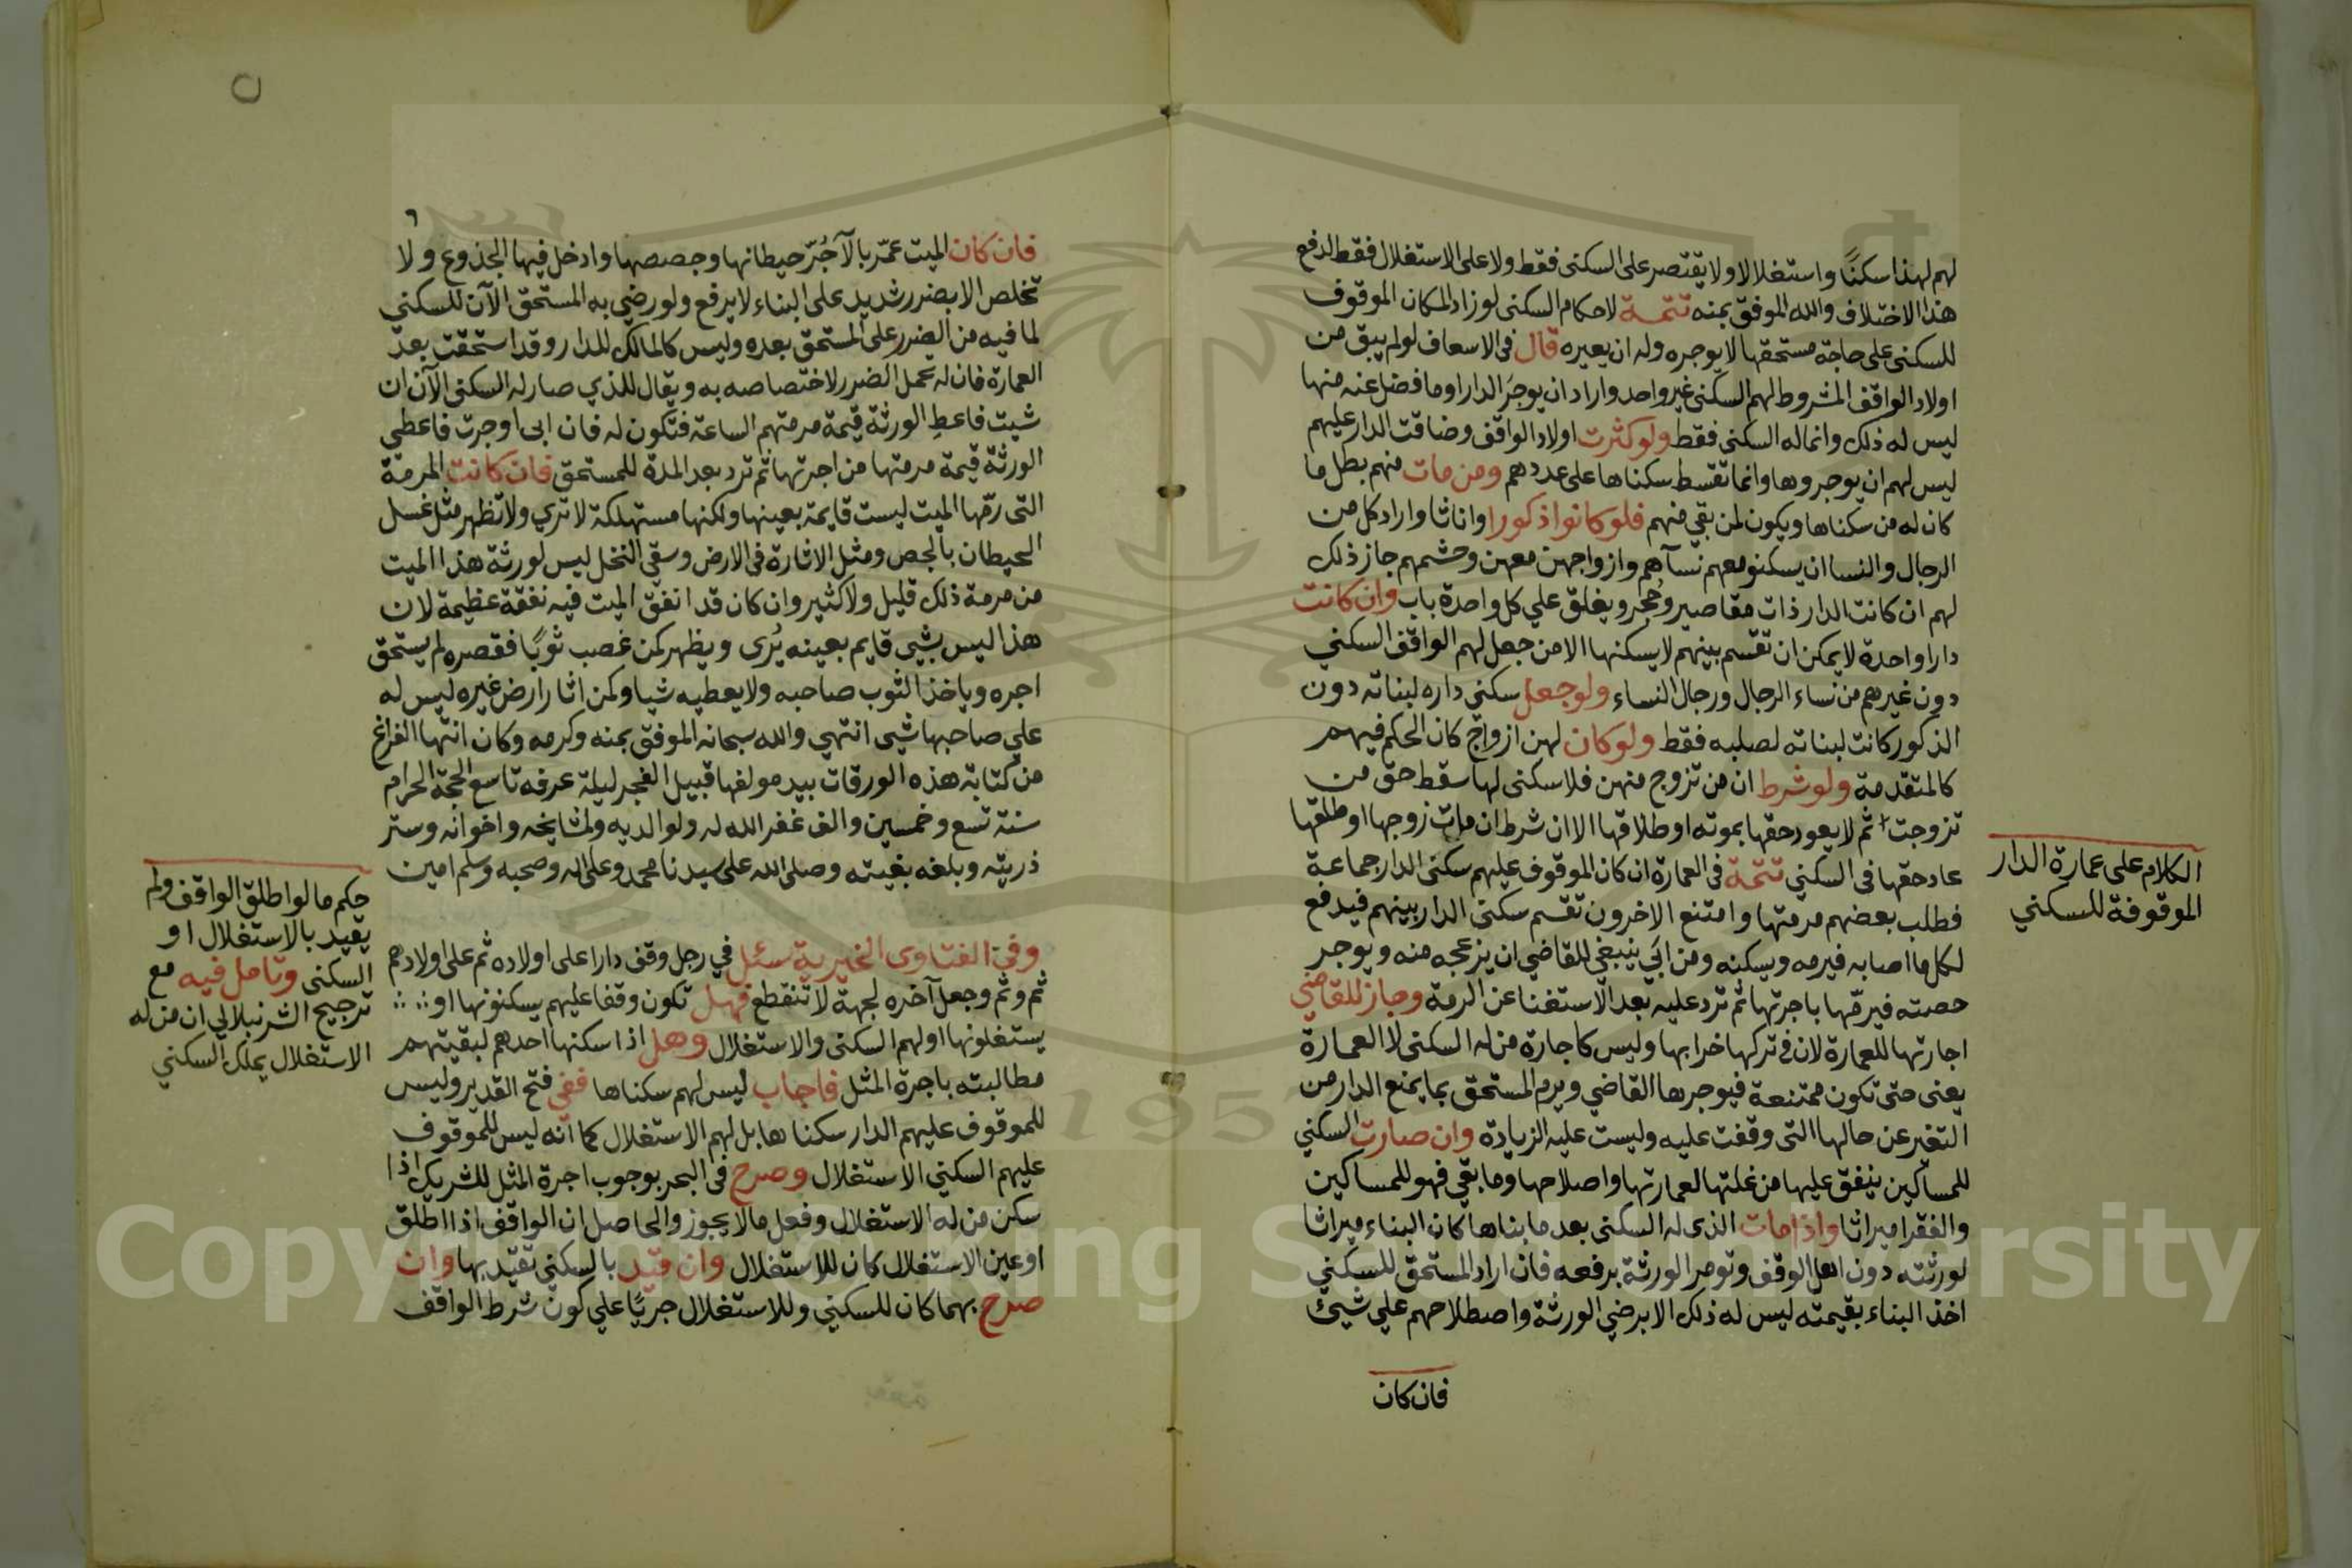 لهم لهذا سكنًا واستغلالا ولا يقتصر على السكنى فقط ولا على الاستغلال فقط لدفع
هذا الاختلاف والله الموفق بمنه تتمة لاحكام السكنى لو زاد المكان الموقوف
للسكنى على حاجة مستحقها لا يوجره وله ان يعيره قال فى الاسعاف لو لم يبق من
اولاد الواقف المشروط لهم السكنى غير واحد واراد ان يوجر الدار او ما فضل عنه منها
ليس له ذلك وانما له السكنى فقط ولو كثرت اولاد الواقف وضاقت الدار عليهم
ليس لهم ان يوجروها وانما تقسط سكناها على عددهم ومن مات منهم بطل ما
كان له من سكناها ويكون لمن بقي منهم فلو كانوا ذكورا واناثا واراد كل من
الرجال والنسا ان يسكنو معهم نسآهم وازواجهن معهن وحشمهم جاز ذلك
لهم ان كانت الدار ذات مقاصير وحُجر ويغلق علي كل واحدة باب وان كانت
دارا واحدة لا يمكن ان تقسم بينهم لا يسكنها الا من جعل لهم الواقف السكني
دون غيرهم من نساء الرجال ورجال النساء ولو جعل سكني داره لبناته دون
الذكور كانت لبناته لصلبه فقط ولو كان لهن ازواج كان الحكم فيهم
كالمتقدمة ولو شرط ان من تزوج منهن فلا سكنى لها سقط حق من
تزوجت ثم لا يعود حقها بموته او طلاقها الا ان شرط ان مات زوجها او طلقها
عاد حقها فى السكني تتمة فى العمارة ان كان الموقوف عليهم سكنى الدار جماعة
فطلب بعضهم مرمتها وامتنع الاخرون تقسم سكنى الدار بينهم فيدفع
لكل ما اصابه فيرمه ويسكنه ومن ابَي ينبغي للقاضي ان يزعجه منه ويوجر
حصته فيرمّها باجرتها ثم ترد عليه بعد الاستغنا عن الرمة وجاز للقاضي
اجارتها للعمارة لان فى تركها خرابها وليس كاجارة من له السكنى لا العمارة
يعنى حتى تكون ممتنعة فيوجرها القاضي ويرم المستحق بما يمنع الدار من
التغير عن حالها التى وقفت عليه وليست عليه الزيادة وان صارت السكني
للمساكين ينفق عليها من غلتها لعمارتها واصلاحها وما بقي فهو للمساكين
والفقرا ميراثا واذا مات الذى له السكنى بعد ما بناها كان البناء ميراثا
لورثته دون اهل الوقف وتومر الورثة برفعه فان اراد المستحق للسكني
اخذ البناء بقيمته ليس له ذلك الا برضي الورثة واصطلاحهم علي شيئ
فان كان
الكلام على عمارة الدار
الموقوفة للسكني
٦
فان كان الميت عمّر بالآجُرّ حيطانها وجصصها وادخل فيها الجذوع ولا
تخلص الا بضرر شديد على البناء لا يرفع ولو رضي به المستحق الآن للسكني
لما فيه من الضرر على المستحق بعده وليس كالمالك للدار وقد استحقت بعد
العمارة فان له تحمل الضرر لاختصاصه به ويقال للذي صار له السكنى الآن ان
شيت فاعطِ الورثة قيمة مرمتهم الساعة فتكون له فان ابى اوجرت فاعطي
الورثة قيمة مرمتها من اجرتها ثم ترد بعد المدة للمستحق فان كانت المرمة
التى رمّها الميت ليست قايمة بعينها ولكنها مستهلكة لا تري ولا تظهر مثل غسل
الحيطان بالجص ومثل الاثارة فى الارض وسقي النخل ليس لورثة هذا الميت
من مرمة ذلك قليل ولا كثير وان كان قد انفق الميت فيه نفقة عظيمة لان
هذا ليس بشيي قايم بعينه يُرى ويظهر كمن غصب ثوبًا فقصره لم يستحق
اجره وياخذ الثوب صاحبه ولا يعطيه شيا وكمن اثار ارض غيره ليس له
علي صاحبها شيى انتهي والله سبحانه الموفق بمنه وكرمه وكان انتها الفراغ
من كتابة هذه الورقات بيد مولفها قبيل الفجر ليلة عرفه تاسع الحجة الحرام
سنة تسع وخمسين والف غفر الله له ولوالديه ولمشايخه واخوانه وستر
ذريته وبلغه بغيته وصلى الله على سيدنا محمد وعلى اله وصحبه وسلم امين
وفى الفتاوى الخيرية سئل في رجل وقف دارا على اولاده ثم على اولادهم
ثم وثم وجعل آخره لجهة لا تنقطع فهل تكون وقفا عليهم يسكنونها او
يستغلونها او لهم السكنى والاستغلال وهل اذا سكنها احدهم لبقيتهم
مطالبته باجرة المثل فاجاب ليس لهم سكناها ففي فتح القدير وليس
للموقوف عليهم الدار سكناها بل لهم الاستغلال كما انه ليس للموقوف
عليهم السكني الاستغلال وصرح فى البحر بوجوب اجرة المثل للشريك اذا
سكن من له الاستغلال وفعل ما لا يجوز والحاصل ان الواقف اذا اطلق
او عين الاستغلال كان للاستغلال وان قيّد بالسكني تقيد بها وان
صرح بهما كان للسكني وللاستغلال جريًا علي كون شرط الواقف
حكم ما لو اطلق الواقف ولم
يقيد بالاستغلال او
السكنى وتامل فيه مع
ترجيح الشرنبلالي ان من له
الاستغلال يملك السكني
Copy King S University
195